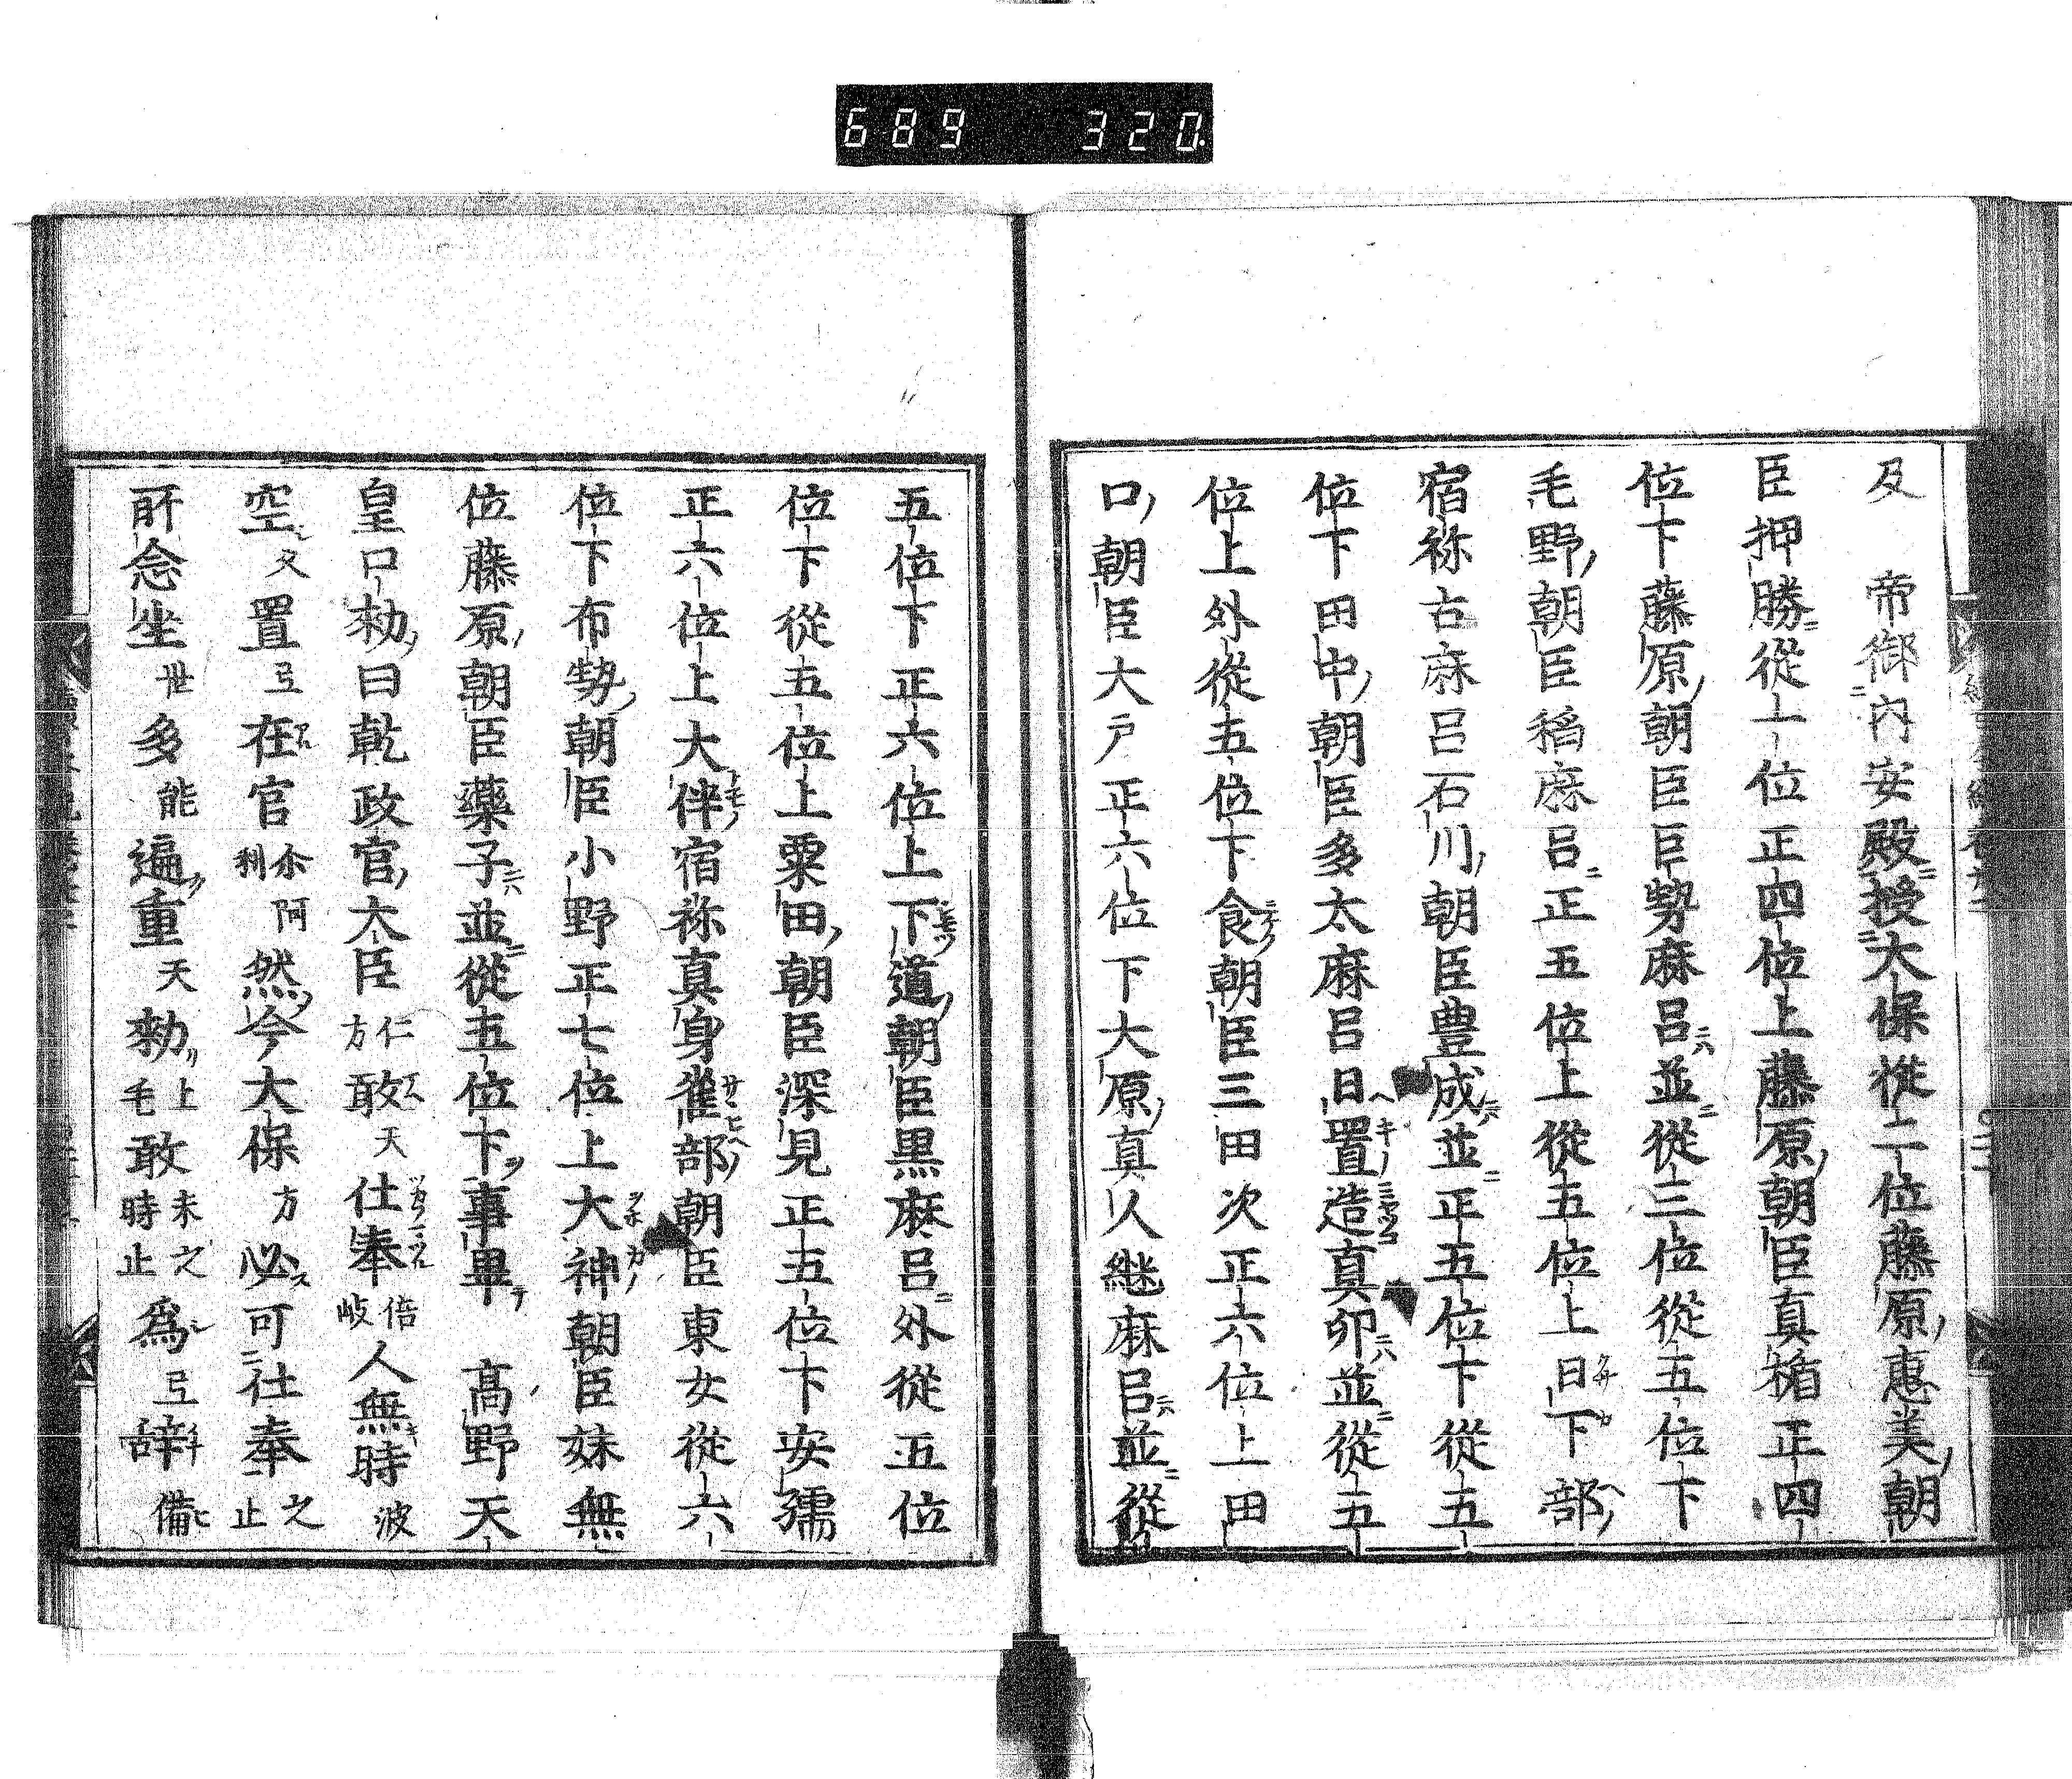 689 320
及 帝御内安殿授大保從二位藤原惠美朝
臣押勝從一位正四位上藤原朝臣真楯正四
位下藤原朝臣巨勢麻呂並從三位從五位下
毛野朝臣稻麻呂正五位上從五位上日下部
宿祢古麻呂石川朝臣豊成並正五位下從五
位下田中朝臣多太麻呂日置造真卯並從五
位上外從五位下食朝臣三田次正六位上田
口朝臣大戸正六位下大原真人継麻呂並從
五位下正六位上下道朝臣黒麻呂外從五位
位下從五位上粟田朝臣深見正五位下安孺
正六位上大伴宿祢真身雀部朝臣東女從六
位下布勢朝臣小野正七位上大神朝臣妹無
位藤原朝臣藥子並從五位下事畢 髙野天
皇口勅曰乾政官大臣仁方敢天仕奉倍岐人無時波
空久置弖在官尓阿利然今大保方必可仕奉之止
所念坐世多能遍重天勅上毛敢未之時止為弖辞備